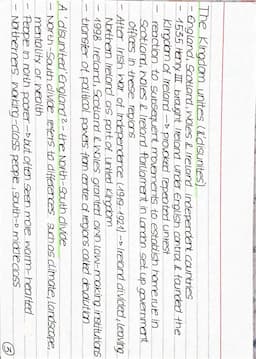 The Kingdom unites (& disunites)
- England, Scotland, Wales & Ireland independent countries
- 1535 Henry III brought Ireland under English control & founded the
Kingdom of Ireland → provoked repeated unrest
- reaction to subsequent movements to establish home rule in
Scotland, Wales & Ireland Parliament in London set up government
offices in these regions
- After Irish War of Independence (1919-1921) → Ireland divided, leaving
Northern Ireland as part of United Kingdom
- 1998: Ireland, Scotland & Wales granted own law-making institutions
- transfer of political powers from centre to regions called devolution
A 'disunited England'? - the North-South divide
- North-South divide refers to differences such as climate, landscape,
mentality or wealth
- People in north poorer → but often seen more warm-hearted
- Northerners working-class people, south → middle class